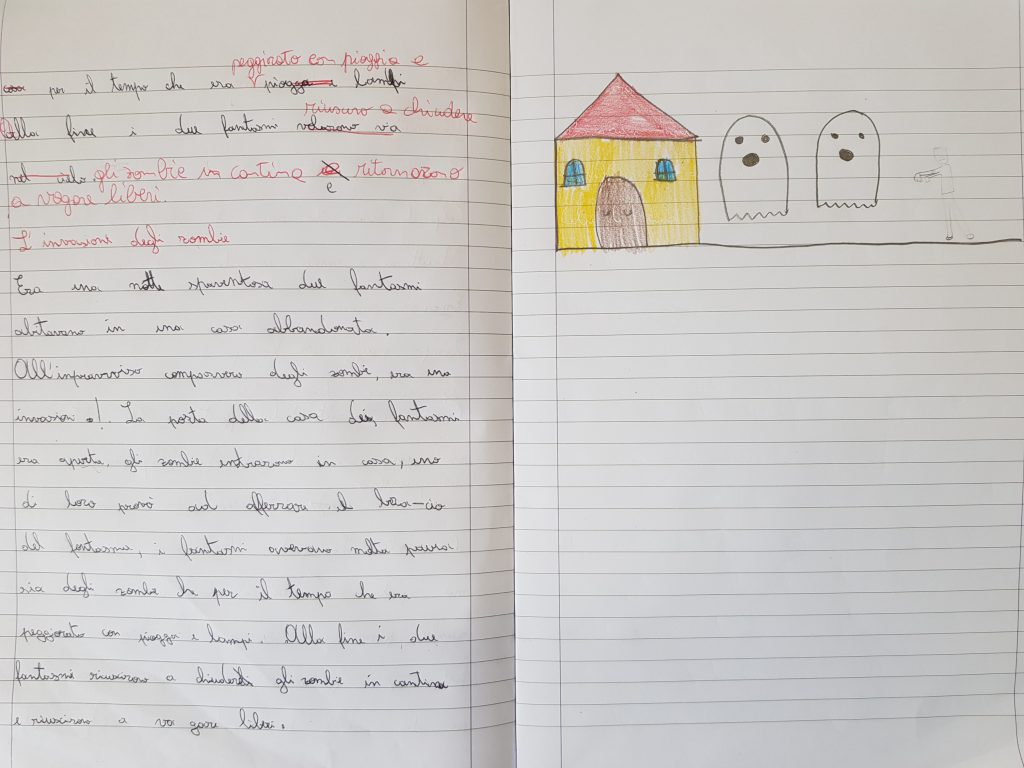 peggiorato con pioggia e
per il tempo che era piogga e lampi
riuscuro a chiudere
Alla fine i due fantasmi volarono via
nel cielo gli zombie in cantina e ritornarono
a vagare liberi.
L'invasioni degli zombie
Era una notte spaventosa due fantasmi
abitavano in una casa abbandonata.
All'inprovviso comparvero degli zombie, era una
invasion e! La porta della casa dei fantasmi
era aperta, gli zombie entrarono in casa, uno
di loro provò ad afferrare il bra-cio
del fantasma, i fantasmi avevano molta paura
sia degli zombie che per il tempo che era
peggiorato con piogga e lampi. Alla fine i due
fantasmi riuscirono a chiudere gli zombie in cantina
e riuscirono a va gare liberi.